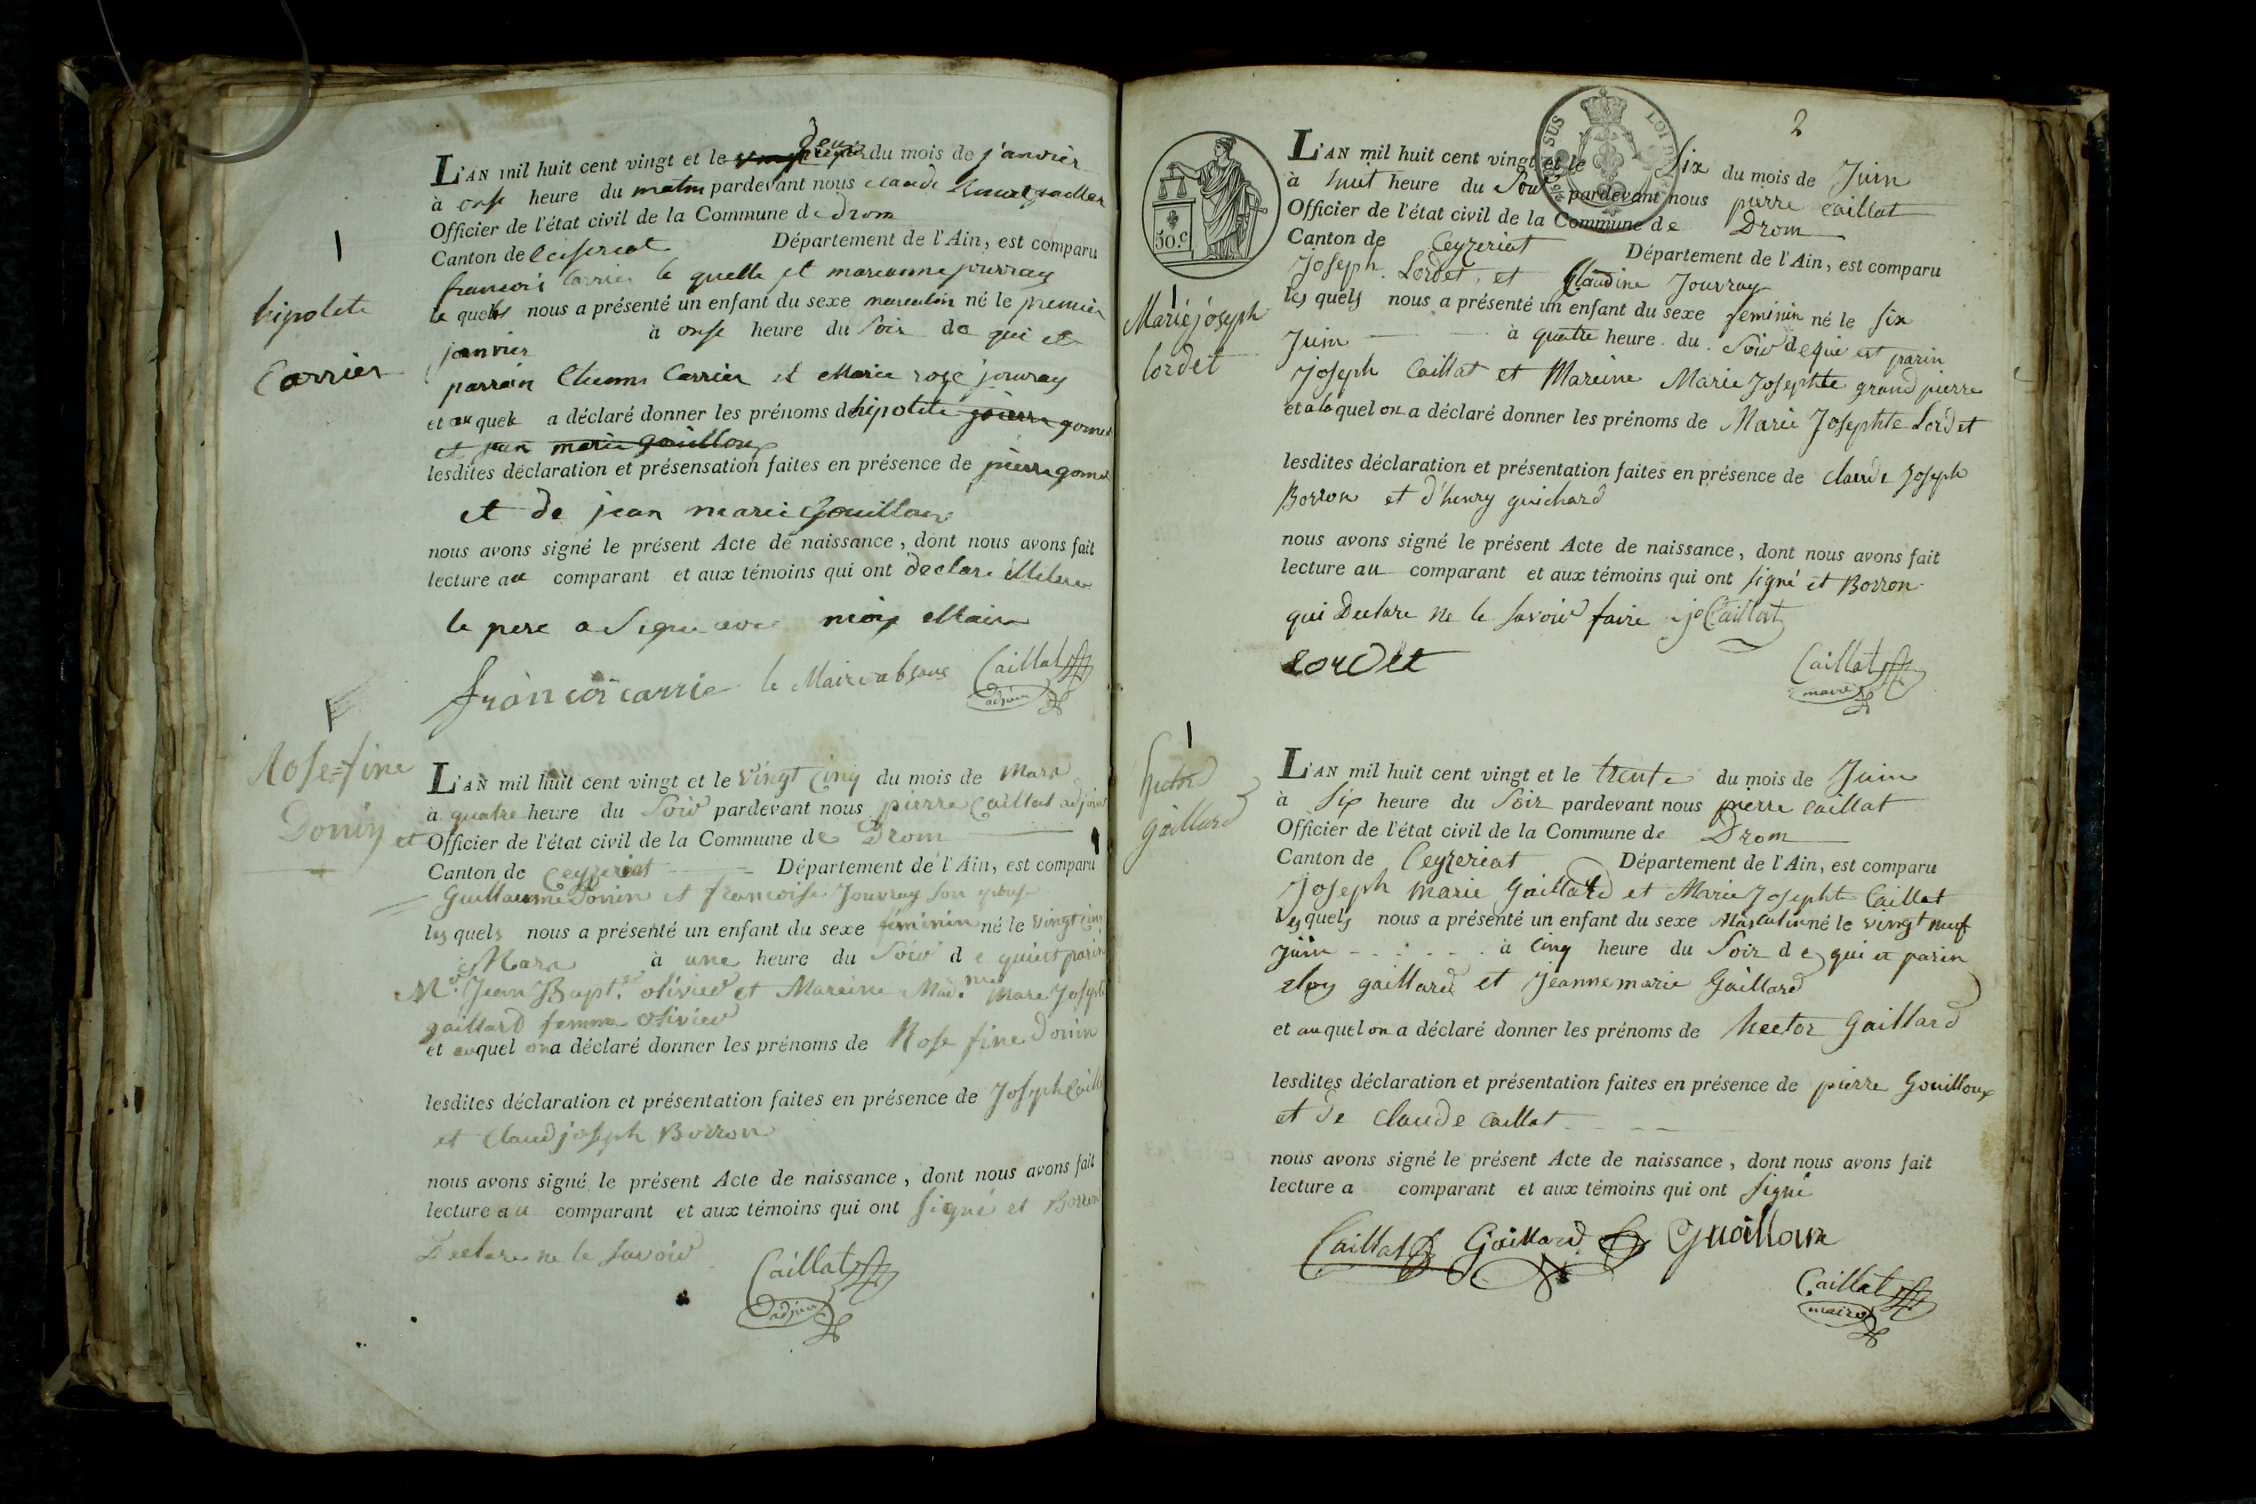 L'AN mil huit cent vingt et le deux du mois de janvier
à onse heure du matin pardevant nous claude
Officier de l'état civil de la Commune de drom
Canton de Département de l'Ain, est comparu
francois Carrier le quelle et marianne jouvray
le quels nous a présenté un enfant du sexe masculin né le premier
janvier à onse heure du soir de qui et
parrain Carrier et Marie rose jouvray
et au quel a déclaré donner les prénoms de hipolite pierre gomet
et jean marie gouilloux
lesdites déclaration et présensation faites en présence de pierre gomet
et de jean marie gouilloux
nous avons signé le présent Acte de naissance, dont nous avons fait
lecture au comparant et aux témoins qui ont declaré
le pere a Signe avec moy Maire
francoi carrie le Maire absans Caillat
adjoin
1
hipolite
Carrier
1
Rose=fine
Donin
L'AN mil huit cent vingt et le vingt Cinq du mois de Mars
à quatre heure du Soir pardevant nous pierre Caillat adjoint
et Officier de l'état civil de la Commune de Drom
Canton de Ceyzeriat Département de l'Ain, est comparu
Guillaume Donin et francoise Jouvray son
les quels nous a présenté un enfant du sexe féminin né le vingt cinq
Mars à une heure du Soir de qui est parin
Mr. Jean Bapt.te olivier et Mareine Mad.me Marie Josephte
gaillard femme olivier
et auquel on a déclaré donner les prénoms de Rose fine Donin
lesdites déclaration et présentation faites en présence de Joseph Caillat
et Claud joseph Borron
nous avons signé le présent Acte de naissance, dont nous avons fait
lecture au comparant et aux témoins qui ont signé et Borron
Declare ne le savoir
Caillat
adjoin
2
30.c
SUS LOI
L'AN mil huit cent vingt et le Six du mois de Juin
à huit heure du Soir pardevant nous pierre caillat
Officier de l'état civil de la Commune de Drom
Canton de Ceyzeriat Département de l'Ain, est comparu
Joseph Lordet et Claudine Jouvray
les quels nous a présenté un enfant du sexe feminin né le six
Juin à quatre heure du Soir de qui est parin
Joseph Caillat et Mareine Marie Josephte grand pierre
et a la quel on a déclaré donner les prénoms de Marie Josephte Lordet
lesdites déclaration et présentation faites en présence de claude Joseph
Borron et d'henry guichard
nous avons signé le présent Acte de naissance, dont nous avons fait
lecture au comparant et aux témoins qui ont signé et Borron
qui Declare ne le savoir faire jh Caillat
Lordet Caillat
maire
1
Marie joseph
lordet
1
hector
gaillard
L'AN mil huit cent vingt et le trente du mois de Juin
à six heure du Soir pardevant nous pierre caillat
Officier de l'état civil de la Commune de Drom
Canton de Ceyzeriat Département de l'Ain, est comparu
Joseph marie Gaillard et Marie Josephte Caillat
les quels nous a présenté un enfant du sexe Masculin né le vingt neuf
juin à cinq heure du Soir de qui et parin
eloy gaillard et jeanne marie Gaillard
et au quel on a déclaré donner les prénoms de hector Gaillard
lesdites déclaration et présentation faites en présence de pierre Gouilloux
et de claude caillat
nous avons signé le présent Acte de naissance, dont nous avons fait
lecture a comparant et aux témoins qui ont signé
Caillat Gaillard Guoilloux
Caillat
maire